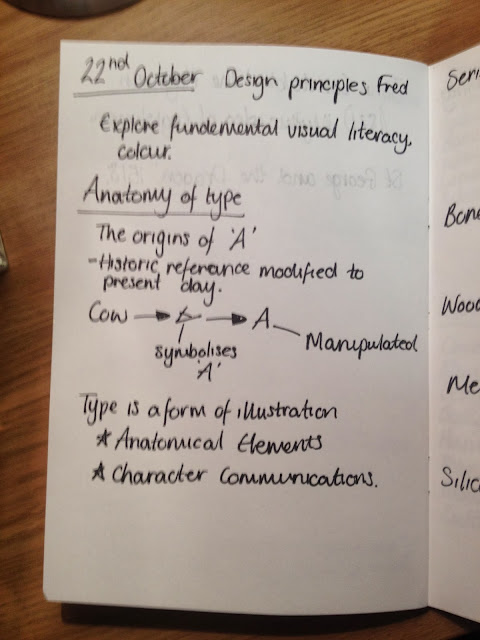 22nd October Design principles Fred
Explore fundemental visual literacy,
colour.
Anatomy of type
The origins of 'A'
-Historic reference modified to
present day.
Cow → → A
symbolises
'A'
Manipulated
Type is a form of illustration
* Anatomical Elements
* Character Communications.
Seri
Bone
Wood
Me
Silic